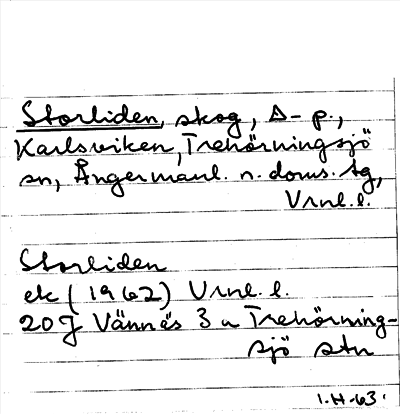 Storliden, skog, D- p.,
Karlsviken, Trehörningsjö
sn, Ångermanl. n. doms. tg,
Vrnl. l.
Storliden
ek (1962) Vrnl. l.
20J Vännäs 3 a Trehörning-
sjö stn
1.H-63.